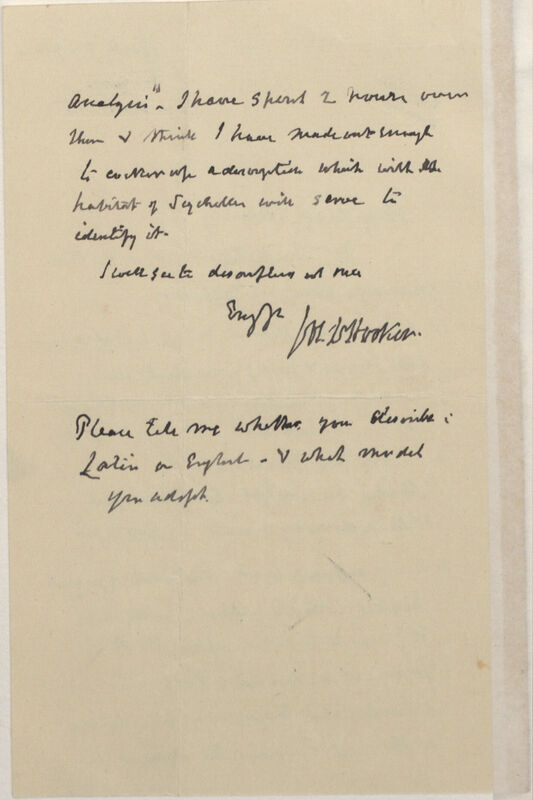 Analysis". I have spent 2 hours over
them & think I have made out enough
to a description which with the
habitat of Seychelles will serve to
identify it.
I will see to at once
J D Hooker.
Please tell me whether you describe in
Latin or English - & what model
you adopt.